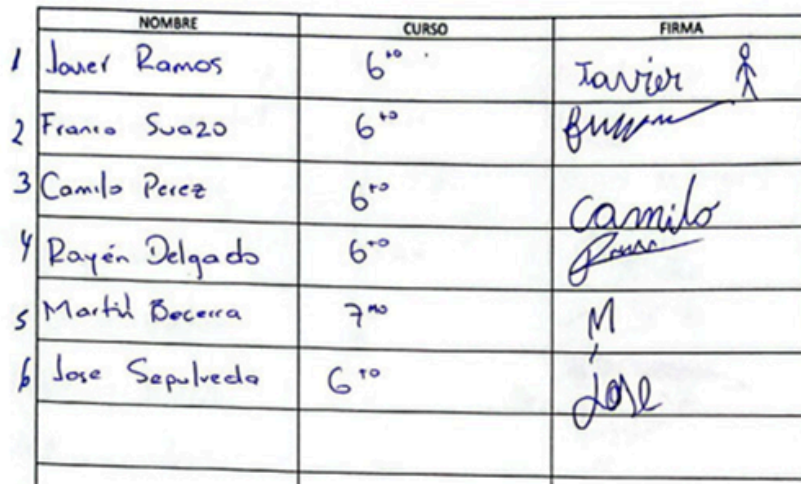 NOMBRE CURSO FIRMA
1 Javier Ramos 6to Javier
2 Franco Suazo 6to
3 Camilo Perez 6to Camilo
4 Rayén Delgado 6to
5 Martin Becerra 7mo M
6 Jose Sepulveda 6to Jose